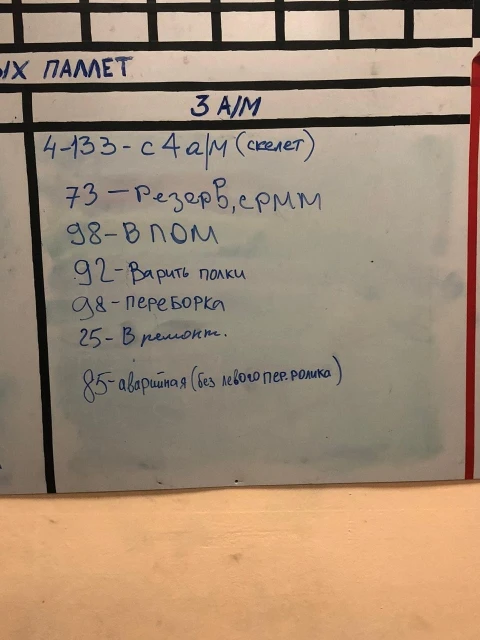 ЫХ ПАЛЛЕТ
3 А/М
4-133- с 4 а/м (скелет)
73 - Резерв, ермм
98- В ПОМ
92- Варить полки
98- ПЕРЕБОРКА
25- В ремонт.
85- аварийная (без левого ПЕР. ролика)